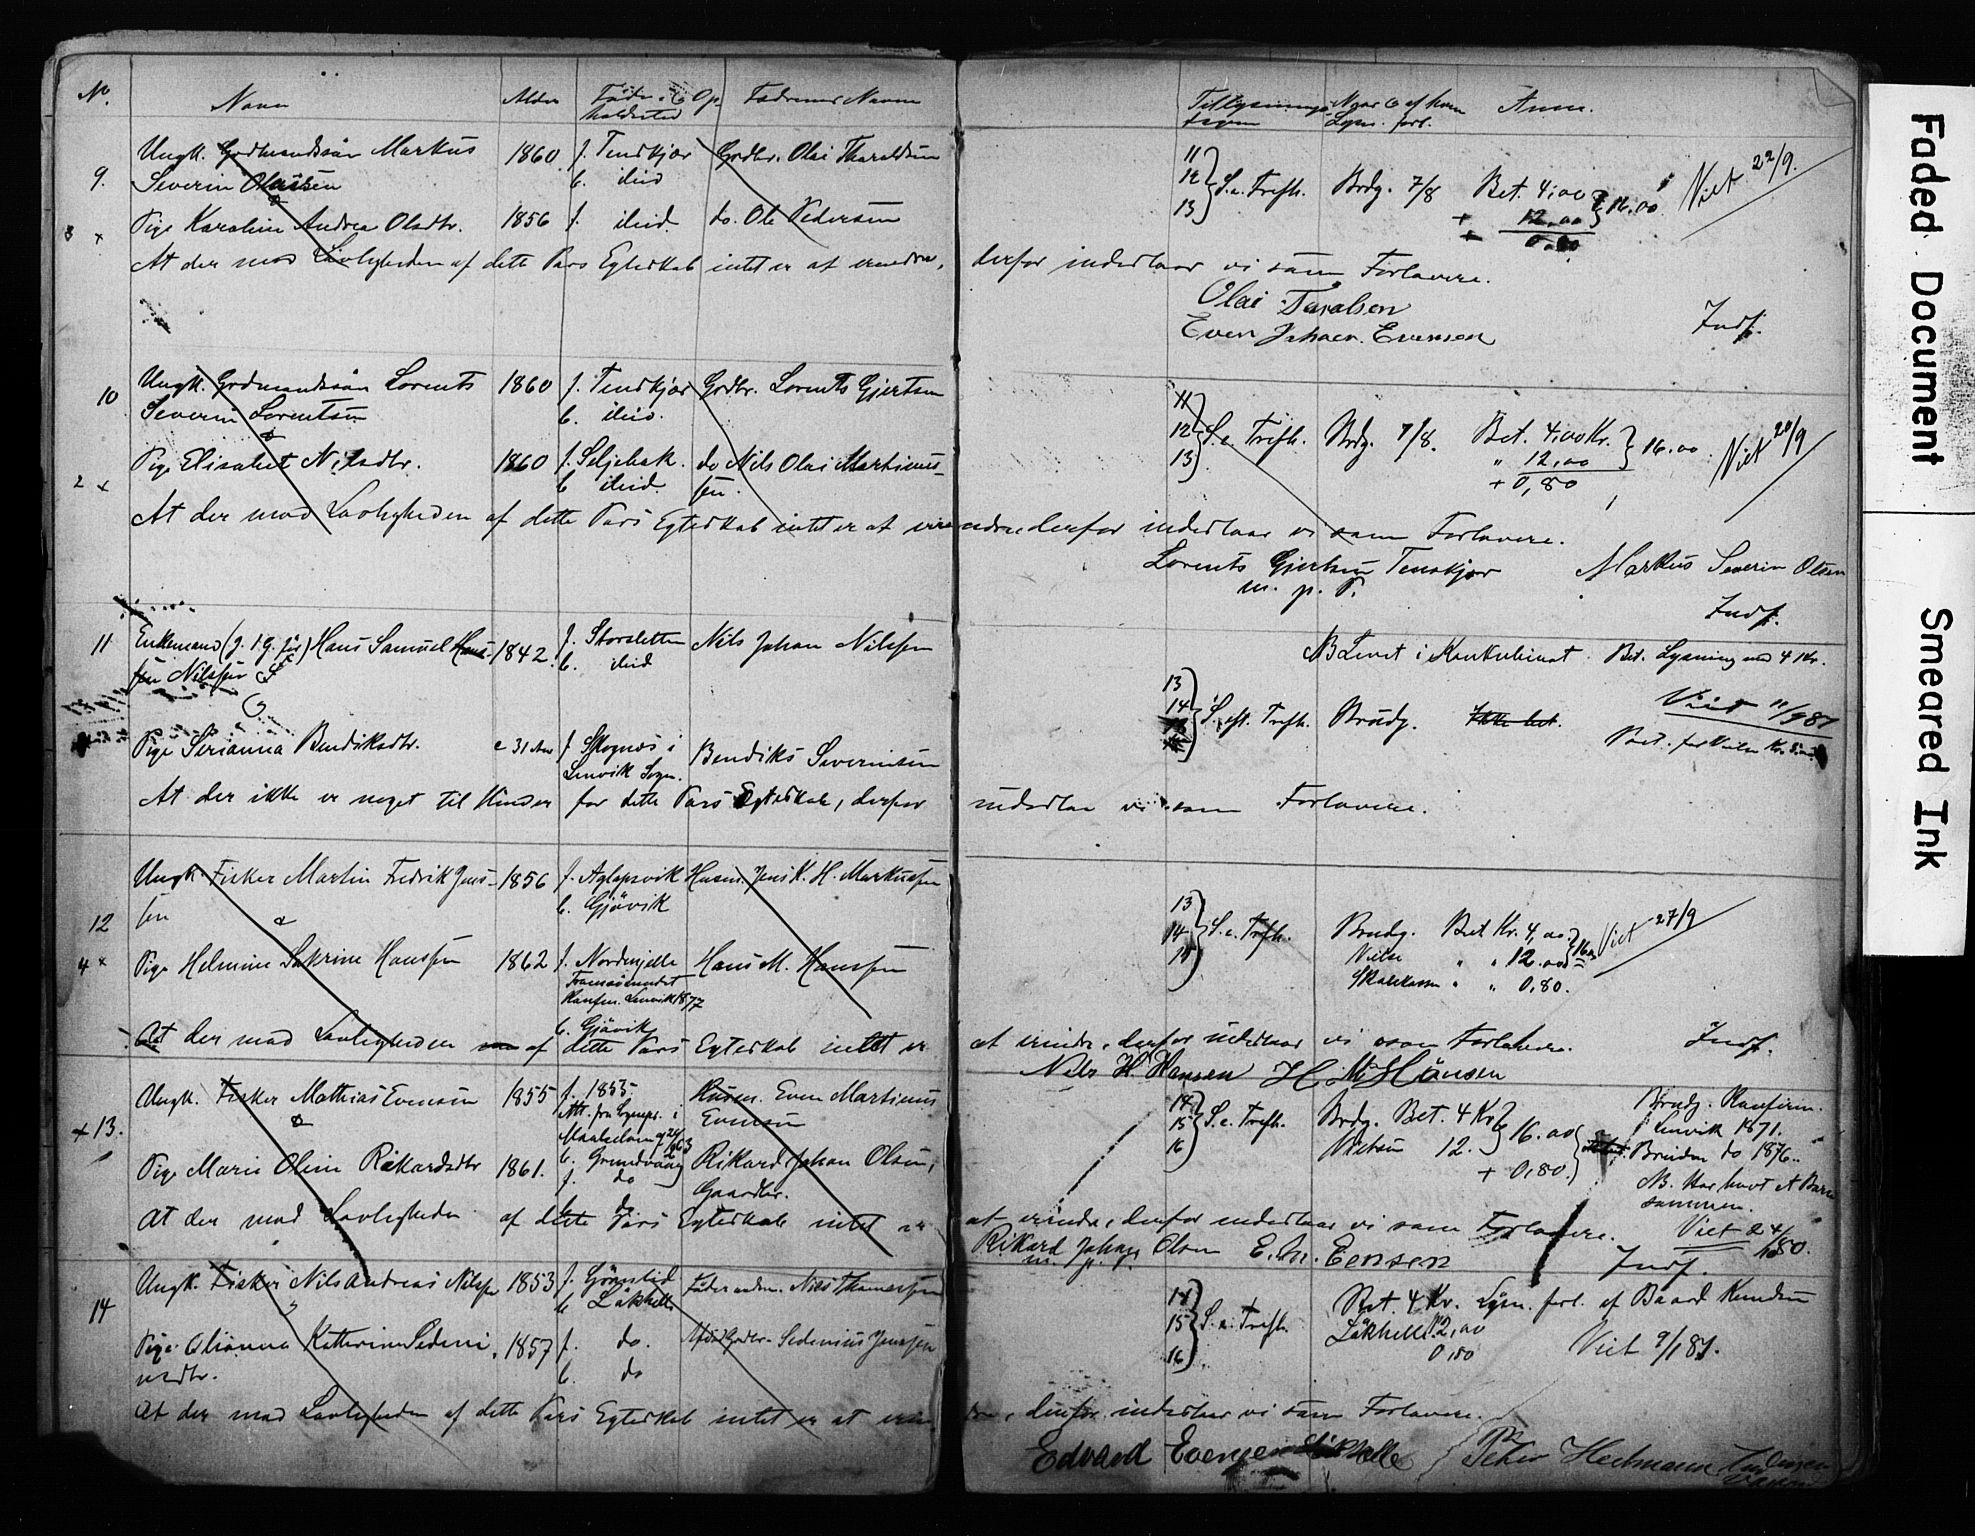 No Navn Alder Føde- & Op holdssted Fædrenes Navne Tillysnings dagen Naar & af hvem Lysn. forl. Anm.
9. Ungk. Grdmandssøn Markus 1860 f. Tenskjær Grdbr. Olai Tharaldsen
Severin Olaisen b. ibid
3 x Pige Karoline Andrea Olsdtr. 1856 f. ibid. do. Ole Pedersen
11 12 13 } S. e. Trefh. Brdg. 7/8 Bet. 4,00 + 12,00 } 16.00 + 0.80 Viet 22/9.
At der mod Lovligheden af dette Pars Egteskab intet er at erindre, derfor indestaar vi som Forlovere.
Olai Taralsen
Even Johan Evensen Indf.
10 Ungk. Grdmandssøn Lorents 1860 f. Tenskjær Grdbr. Lorents Gjertsen
Severin Lorentsen b. ibid.
2 x Pige Elisabet Nilsdtr. 1860 f. Seljebak. do Nils Olai Martinus-
b. ibid. sen.
11 12 13 } S. e. Trefh. Brdg. 7/8. Bet. 4,00 Kr. " 12,00 } 16.00 + 0,80 Viet 20/9
At der mod Lovligheden af dette Pars Egteskab intet er at erindre, derfor indestaar vi som Forlovere.
Lorents Gjertsen Tenskjær Markus Severin Olsen
m. p. P.
Indf.
11 Enkemand (g. 1 g. før) Hans Samuel Hans- 1842. f. Storsletten Nils Johan Nilssen
sen Nilssen b. ibid
NB Levet i Konkubinat. Bet. Lysning med 4 Kr.
13 14 } S. eft. Trefh. Brudg. Ikke bet. Viet 11/9 81
Pige Serianna Bendiksdtr. c 31 Aar f. Skognes i Bendiks Severinsen
Lenvik Sogn.
Bet. for Vielse
At der ikke er noget til Hinder for dette Pars Egteskab, derfor indestaa vi som Forlovere.
12 Ungk. Fisker Martin Fredrik Jens- 1856 f. Aglapsvik Husm. Jens K. H. Markussen
sen b. Gjøvik
4 x Pige Helmine Sakrine Hanssen 1862 f. Nordmjelle Hans M. Hanssen
Konfm. Lenvik 1877
b. Gjøvik
13 14 15 } S. e. Trefh. Brudg. Bet Kr. 4,00. Vielse " " 12.00 } 16 Viet 27/9
Skolekassen " " 0,80.
At der mod Lovligheden af dette Pars Egteskab intet er at erindre, derfor indestaar vi som Forlovere. Indf.
Nils H. Hansen H M Hansen
x 13. Ungk. Fisker Mathias Evensen 1855 f. 1855 Husm. Even Martinus
Att. fra Sognepr. i Evensen
Maalselven
b. Grundvaag
Pige Marie Oline Rikardsdtr 1861. f. do Rikard Johan Olsen,
b. do Gaardbr.
14 15 16 } S. e. Trefh. Brdg. Bet. 4 Kr Vielsen 12. } 16.00 + 0,80.
Brudg. Konfirm. Lenvik 1871. Bruden do 1876.
NB. Har havt et Barn sammen.
Viet 24/10 80.
At der mod Lovligheden af dette Pars Egteskab intet er at erindre, derfor indestaar vi som Forlovere.
Rikard Johan Olsen E. M. Eensen Indf.
m. p. P.
14 Ungk. Fisker Nils Andreas Nilssen 1853 f. Grønlid Nils Thomassen
b. Lakhelle
Pige Olianna Kathrine Sedeni- 1857 f. do. Sedenius Jenssen
usdtr. b. do
14 15 16 } S. e. Trefh. Bet. 4 Kr. Lysn. forl. af Baard Knudsen
Lakhelle 12,00 0,80 Viet 9/1 81.
At der mod Lovligheden af dette Pars Egteskab intet er at erindre, derfor indestaar vi som Forlovere.
Edvard Evensen Lakhelle Peter Heitmann
Faded Document
Smeared Ink